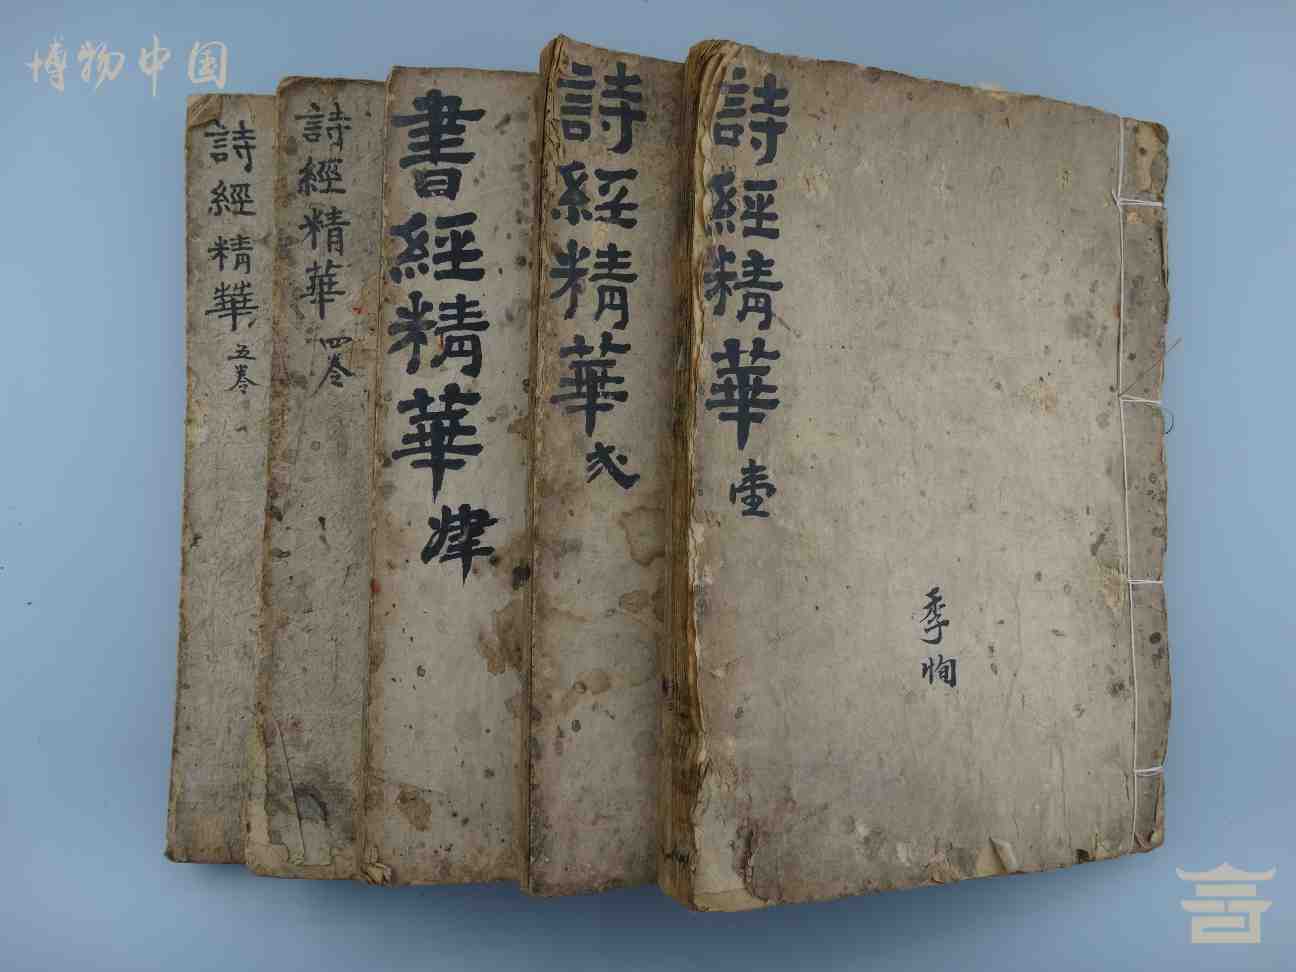 博物中国
詩經精華
壹
季恂
詩經精華
弍
書經精華
肆
詩經精華
四卷
詩經精華
五卷